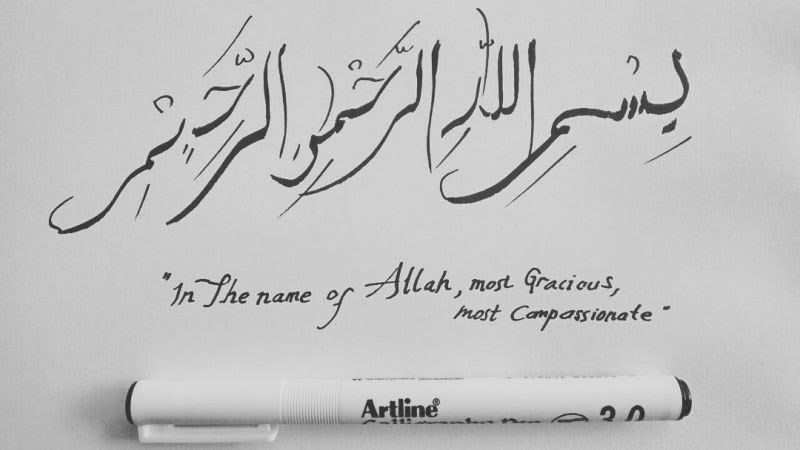 بِسْمِ اللّٰهِ الرَّحْمٰنِ الرَّحِيْمِ
"In The name of Allah, most Gracious,
most Compassionate"
Artline®
Calligraphy Pen 3.0